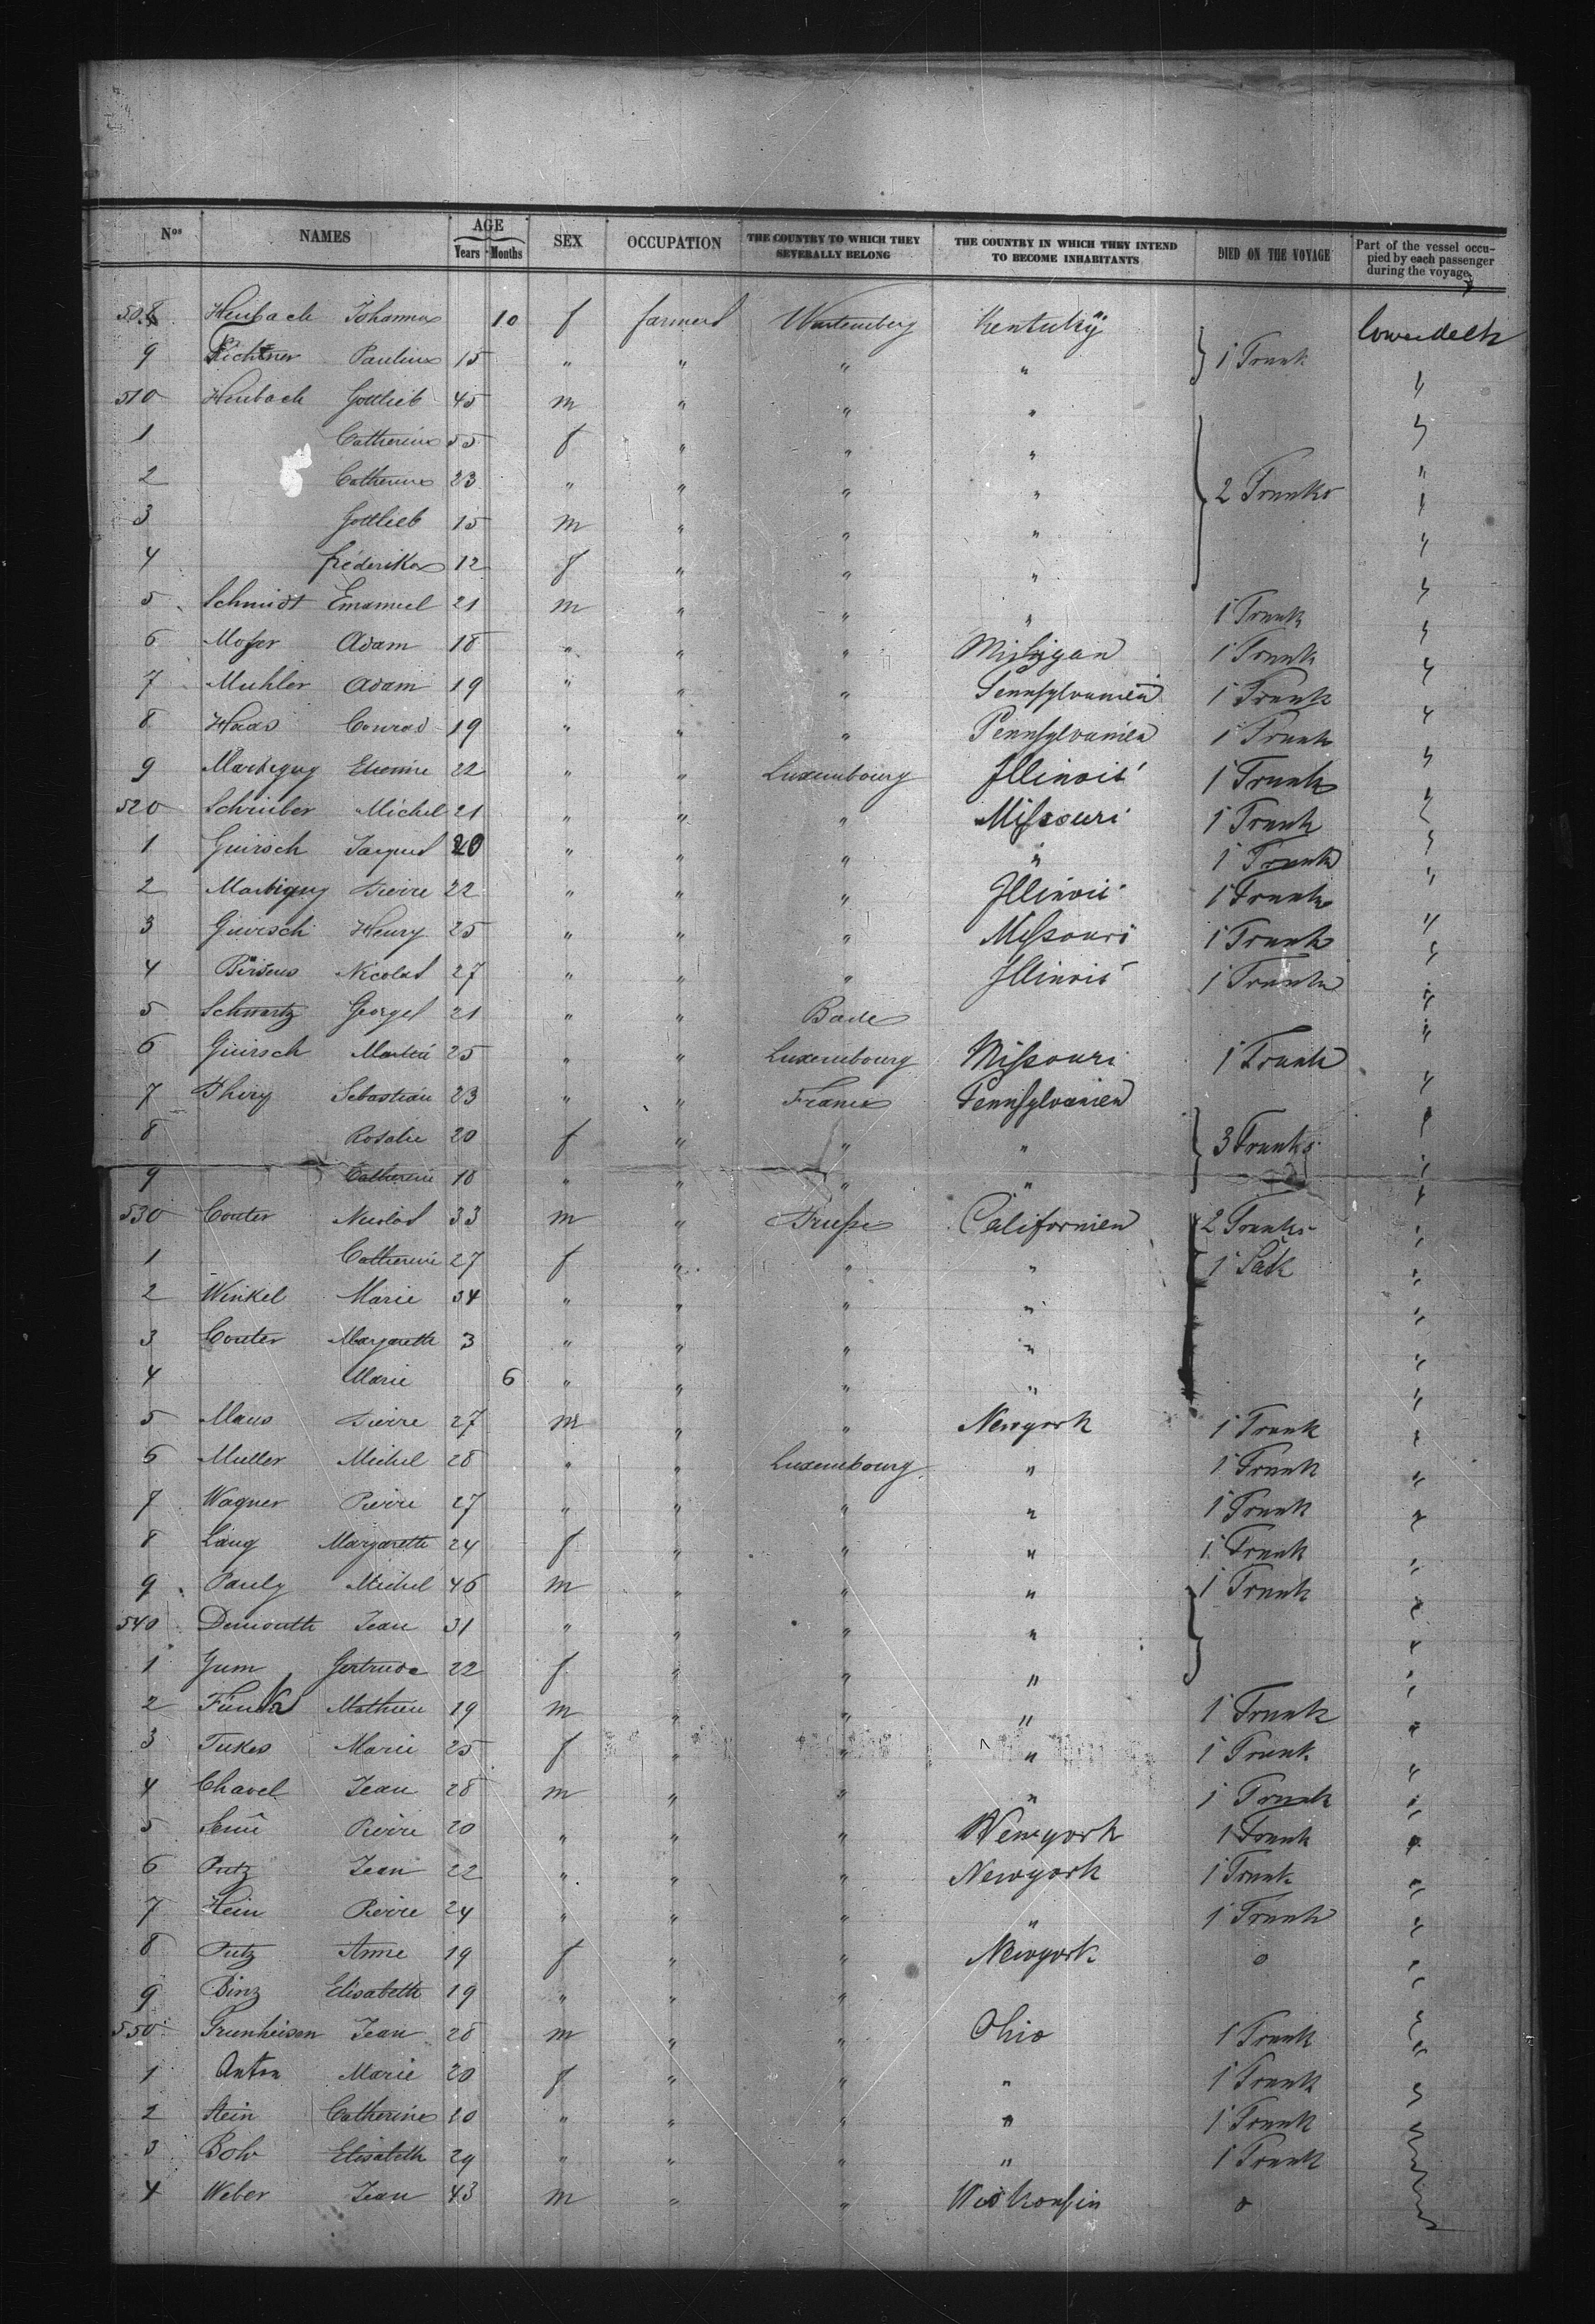 Nos NAMES AGE Years Months SEX OCCUPATION THE COUNTRY TO WHICH THEY SEVERALLY BELONG THE COUNTRY IN WHICH THEY INTEND TO BECOME INHABITANTS DIED ON THE VOYAGE Part of the vessel occupied by each passenger during the voyage
508 Heubach Johanna 10 f farmers Wurtemberg Kentuky lowerdeck
9 Pauline 15 " " " " 1 Trunk "
510 Heubach Gottlieb 45 m " " " "
1 Catherine 55 f " " " "
2 Catherine 23 " " " " 2 Trunks "
3 Gottlieb 15 m " " " "
4 fréderika 12 f " " " "
5 Schmidt Emanuel 21 m " " " 1 Trunk "
6 Moser Adam 18 " " " Michigan 1 Trunk "
7 Muhler Adam 19 " " " Pennsylvanien 1 Trunk "
8 Haas Conrad 19 " " " Pennsylvanien 1 Trunk "
9 Martigny Etienne 22 " " Luxembourg Illinois 1 Trunk "
520 Schreiber Michel 21 " " " Missouri 1 Trunk "
1 Guirsch Jacques 20 " " " " 1 Trunk "
2 Martigny Pierre 22 " " " Illinois 1 Trunk "
3 Guirsch Henry 25 " " " Missouri 1 Trunk "
4 Nicolas 27 " " " Illinois 1 Trunk "
5 Schwartz Georges 21 " " Bade "
6 Guirsch Martin 25 " " Luxembourg Missouri 1 Trunk "
7 Thiry Sebastian 23 " " France Pennsylvanien "
8 Rosalie 20 f " " " 3 Trunks "
9 Catherine 18 " " " " "
530 Couter Nicolas 33 m " Prusse Californien 2 Trunks "
1 Catherine 27 f " " " 1 Sack "
2 Winkel Marie 34 " " " " "
3 Couter Margareth 3 " " " " "
4 Marie 6 " " " " "
5 Maus Pierre 27 m " " Newyork 1 Trunk "
6 Muller Michel 28 " " Luxembourg " 1 Trunk "
7 Wagner Pierre 27 " " " " 1 Trunk "
8 Lang Margareth 24 f " " " 1 Trunk "
9 Pauly Michel 46 m " " " 1 Trunk "
540 Demouth Jean 31 " " " " "
1 Jum Gertrude 22 f " " " "
2 Funck Mathieu 19 m " " " 1 Trunk "
3 Tukes Marie 25 f " " " 1 Trunk "
4 Chavel Jean 28 m " " " 1 Trunk "
5 Pierre 20 " " " Newyork 1 Trunk "
6 Putz Jean 22 " " " Newyork 1 Trunk "
7 Hein Pierre 24 " " " " 1 Trunk "
8 Putz Anne 19 f " " Newyork o "
9 Binz Elisabeth 19 " " " "
550 Grunheisen Jean 28 m " " Ohio 1 Trunk "
1 Anton Marie 20 f " " " 1 Trunk "
2 Stein Catherine 20 " " " " 1 Trunk "
3 Bohr Elisabeth 29 " " " " 1 Trunk "
4 Weber Jean 43 m " " Wiskonsin o "